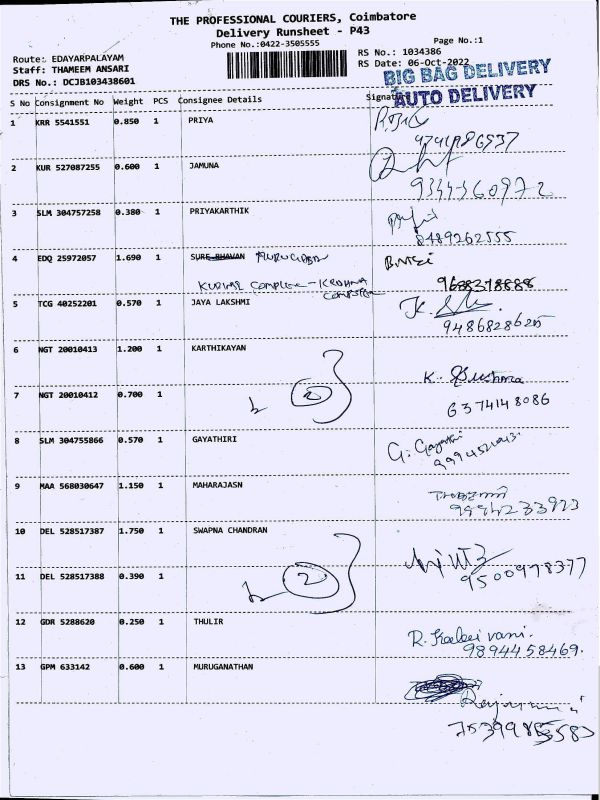 THE PROFESSIONAL COURIERS, Coimbatore
Delivery Runsheet - P43
Phone No.:0422-3505555
Page No.:1
Route: EDAYARPALAYAM
RS No.: 1034386
Staff: THAMEEM ANSARI
RS Date: 06-Oct-2022
DRS No.: DCJB103438601
BIG BAG DELIVERY
AUTO DELIVERY
S No Consignment No Weight PCS Consignee Details
1 KRR 5541551 0.850 1 PRIYA
2 KUR 527087255 0.600 1 JAMUNA
3 SLM 304757258 0.380 1 PRIYAKARTHIK
8489262555
4 EDQ 25972057 1.690 1 SURE BHAVAN
5 TCG 40252201 0.570 1 JAYA LAKSHMI
9486828625
6 NGT 20010413 1.200 1 KARTHIKAYAN
2
7 NGT 20010412 0.700 1
6374148086
8 SLM 304755866 0.570 1 GAYATHIRI
G. Gayathri
9 MAA 568030647 1.150 1 MAHARAJASN
10 DEL 528517387 1.750 1 SWAPNA CHANDRAN
2
9500978377
11 DEL 528517388 0.390 1
12 GDR 5288620 0.250 1 THULIR
R. Kalaivani.
9894458469.
13 GPM 633142 0.600 1 MURUGANATHAN